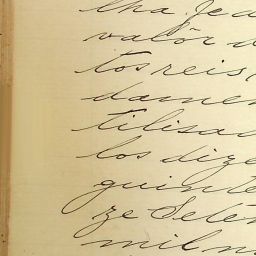 lha fed
valôr d
tos reis,
damen
tilisad
los dize
guinte
ze Seter
mil n